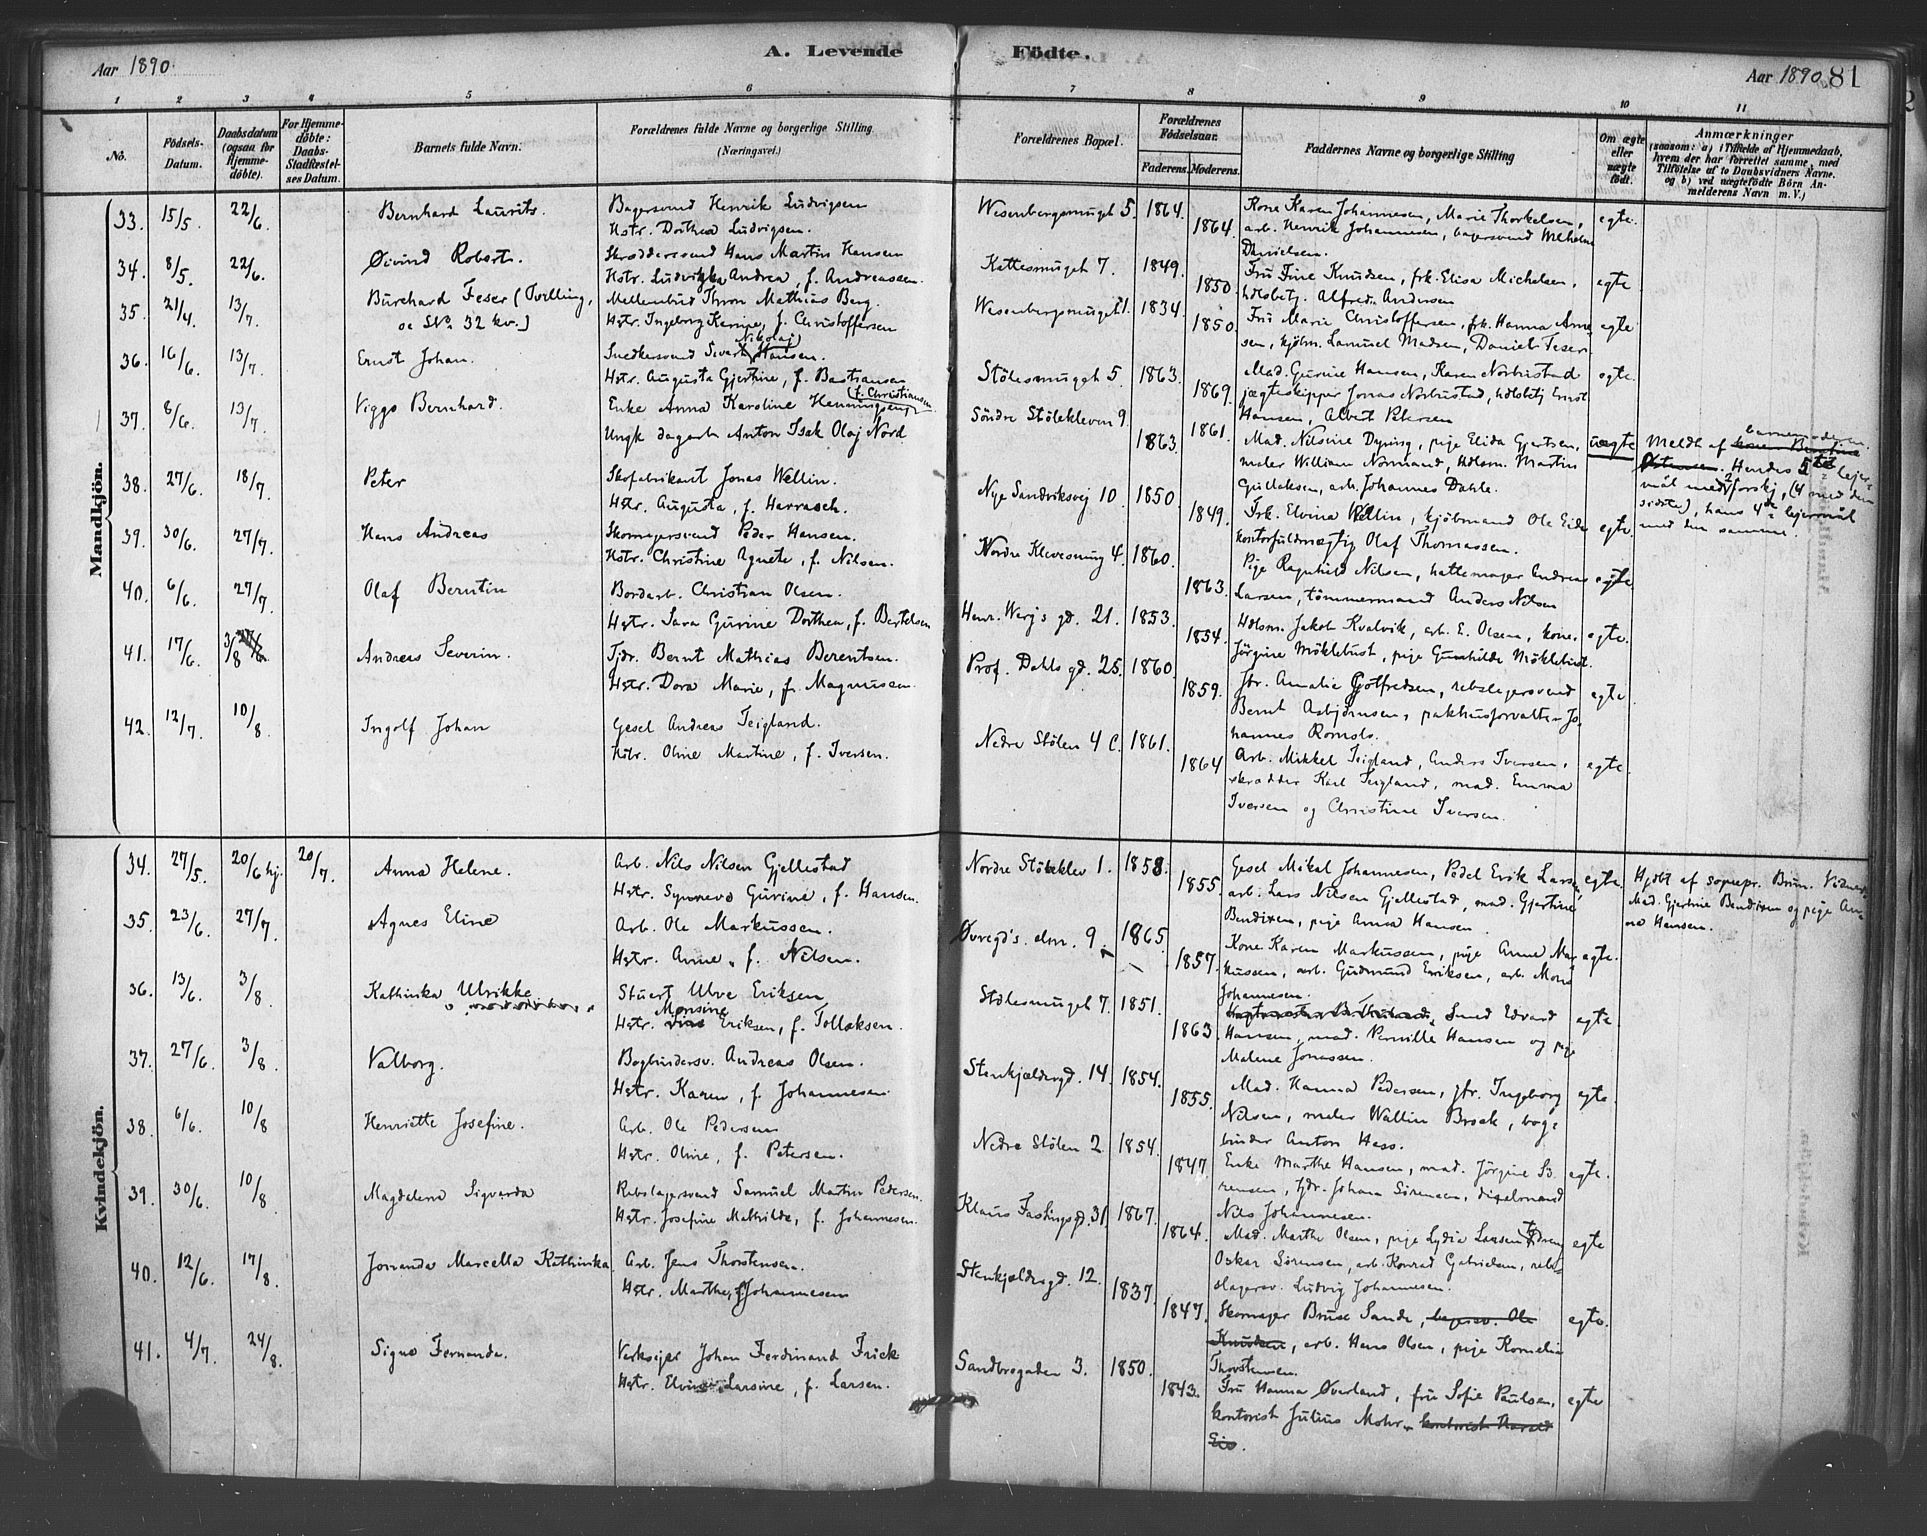 Aar 1890.
A. Levende Födte.
Aar 1890. 81
1 2 3 4 5 6 7 8 9 10 11
No.
Födsels-Datum.
Daabsdatum (ogsaa for Hjemme-döbte).
For Hjemme-döbte: Daabs-Stadfæstel-ses Datum.
Barnets fulde Navn.
Forældrenes fulde Navne og borgerlige Stilling (Næringsvei.)
Forældrenes Bopæl.
Forældrenes Födselsaar.
Faderens. Moderens.
Faddernes Navne og borgerlige Stilling
Om ægte eller uægte födt.
Anmærkninger
(saasom: a) i Tilfælde af Hjemmedaab, hvem der har forrettet samme, med Tilföielse af to Daabsvidners Navne, og b) ved uægtefödte Börn Anmelderens Navn m. V.)
Mandkjön.
33. 15/5. 22/6. Bernhard Laurits.
Bagersvend Henrik Ludvigsen
Hstr. Dorthea Ludvigsen.
Wesenbergsmuget 5. 1864. 1864.
Kone Karen Johannesen, Marie Thorkelsen,
arb. Henrik Johannesen, bagersvend Wilhelm
Danielsen.
egte.
34. 8/5. 22/6. Øivind Robert.
Skræddersvend Hans Martin Hansen
Hstr. Ludvikka Andrea, f. Andreassen.
Kattesmuget 7. 1849. 1850.
Fru Fine Knudsen, frk. Elisa Michelsen,
hdlsbetj. Alfred Andersen
egte.
35. 21/4. 13/7. Burchard Feser (Tvilling,
se No. 32 kv.)
Mellembud Thron Mathias Berg.
Hstr. Ingeborg Kernine, f. Christoffersen
Wesenbergsmuget 1. 1834. 1850.
Fru Marie Christoffersen, frk. Hanna Arne-
sen, kjöbm. Samuel Madsen, Daniel Feser.
egte
36. 16/6. 13/7. Ernst Johan.
Snedkersvend Sivert Nikolaj Hansen.
Hstr. Augusta Gjertine, f. Bastiansen
Stölesmuget 5. 1863. 1869.
Mad. Gurine Hansen, Karen Norbustad
jægteskipper Jonas Norbustad, hdlsbetj Ernst
Hansen, Albert Petersen
egte.
37. 8/6. 13/7. Viggo Bernhard.
Enke Anna Karoline Henningsen, f. Christiansen
Ungk. dagarb. Anton Isak Olaj Nord
Söndre Stölekleven 9 1863. 1861.
Mad. Nilsine Dyning, pige Elida Gjertsen,
maler William Normand, hdlsm. Martin
Gullaksen, arb. Johannes Dahle.
uegte
Meldt af barnemoderen.
Hendes 5te leier-
mål med 2 forskj., (4 med den
sidste), hans 4de leiermål
med den samme.
38. 27/6. 18/7. Peter
Skofabrikant Jonas Wellin.
Hstr. Augusta, f. Harrasch.
Nye Sandviksvej 10. 1850. 1849.
Frk. Elvina Wellin, kjöbmand Ole Eide
kontorfuldmægtig Olaf Thomassen.
egte.
39. 30/6. 27/7. Hans Andreas
Skomagersvend Peder Hansen.
Hstr. Christine Agnete, f. Nilsen.
Nordre Klevesmug 4. 1860. 1863.
Pige Ragnhild Nilsen, hattemager Andreas
Larsen, tömmermand Anders Nilsen
egte.
40. 6/6. 27/7. Olaf Berntin
Bordarb. Christian Olsen.
Hstr. Sara Gurine Dorthea, f. Bertelsen
Henr. Werg's gd. 21. 1853. 1854.
Hdlsm. Jakob Kvalvik, arb. E. Olsen, kone
Jörgine Möklebust, pige Gunhilde Möklebust.
egte.
41. 17/6. 3/8 Andreas Severin.
Tjdr. Bernt Mathias Berentsen.
Hstr. Dora Marie, f. Magnusen.
Prof. Dahls gd. 25. 1860. 1859.
Jfr. Amalie Gotfredsen, rebslagersvend
Bernt Asbjörnsen, pakhusforvalter Jo-
hannes Romslo.
egte
42. 12/7. 10/8. Ingolf Johan
Gesel Andreas Teigland.
Hstr. Oline Martine, f. Iversen.
Nedre Stölen 4 C. 1861. 1864
Arb. Mikkel Teigland, Anders Iversen,
skrædder Karl Teigland, mad. Emma
Iversen og Christine Iversen.
egte.
Kvindekjön.
34. 27/5. 20/6 hj. 20/7. Anna Helene.
Arb. Nils Nilsen Gjellestad
Hstr. Synneva Gurine, f. Hansen.
Nordre Stöleklev 1. 1858. 1855.
Gesel Mikal Johannesen, Pedel Erik Larsen,
arb. Lars Nilsen Gjellestad, mad. Gjertine
Bendixen, pige Anna Hansen.
egte.
Hjdbt af sognepr. Brun. Vidner:
Mad. Gjertine Bendixen og pige An-
na Hansen.
35. 23/6. 27/7. Agnes Eline
Arb. Ole Markussen.
Hstr. Anne, f. Nilsen.
Øvregd's. alm. 9 1865. 1857.
Kone Karen Markussen, pige Anne Mar-
kussen, arb. Gudmund Eriksen, arb. Mons
Johannesen.
egte.
36. 13/6. 3/8. Kathinka Ulrikke
Stuert Ulve Eriksen
Hstr. Monsine Eriksen, f. Tollaksen.
Stölesmuget 7. 1851. 1863.
Smed Edvard
Hansen, mad. Pernille Hansen og pige
Malene Jonassen.
egte.
37. 27/6. 3/8. Valborg.
Bogbindersv. Andreas Olsen.
Hstr. Karen, f. Johannesen
Stenkjældergd. 14. 1854. 1855.
Mad. Hanna Pedersen, jfr. Ingeborg
Nilsen, maler Wallin Brock, bog-
binder Anton Hess.
egte.
38. 6/6. 10/8 Henriette Josefine.
Arb. Ole Pedersen
Hstr. Oline, f. Petersen.
Nedre Stölen 2. 1854. 1847.
Enke Marthe Hansen, mad. Jörgine Sö-
rensen, tjdr. Johan Sörensen,
Nils Johannesen.
egte.
39. 30/6. 10/8. Magdalena Sigvarda
Rebslagersvend Samuel Martin Pedersen.
Hstr. Josefine Mathilde, f. Johannesen.
Klaus Fastingsgd. 31. 1867. 1864.
Mad. Marthe Olsen, pige Lydia Larsen, dreng
Oskar Sörensen, arb. Konrad Gabrielsen, reb-
slagersv. Ludvig Johannesen.
egte
40. 12/6. 17/8. Jorranda Marcella Kathinka
Arb. Jens Thorstensen.
Hstr. Marthe, f. Johannesen
Stenkjældergd. 12. 1837. 1847.
Skomager Bruse Sande, bagersv. Ole
Knudsen, arb. Hans Olsen, pige Kornelia
Thorstensen.
egte.
41. 4/7. 24/8. Signe Fernanda.
Verkseier Johan Ferdinand Frick
Hstr. Elvine Larsine, f. Larsen.
Sandbrogaden 3. 1850. 1843.
Fru Hanna Øverland, fru Sofie Paulsen,
kontorist Julius Mohr, kontorist Harald
Eis.
egte